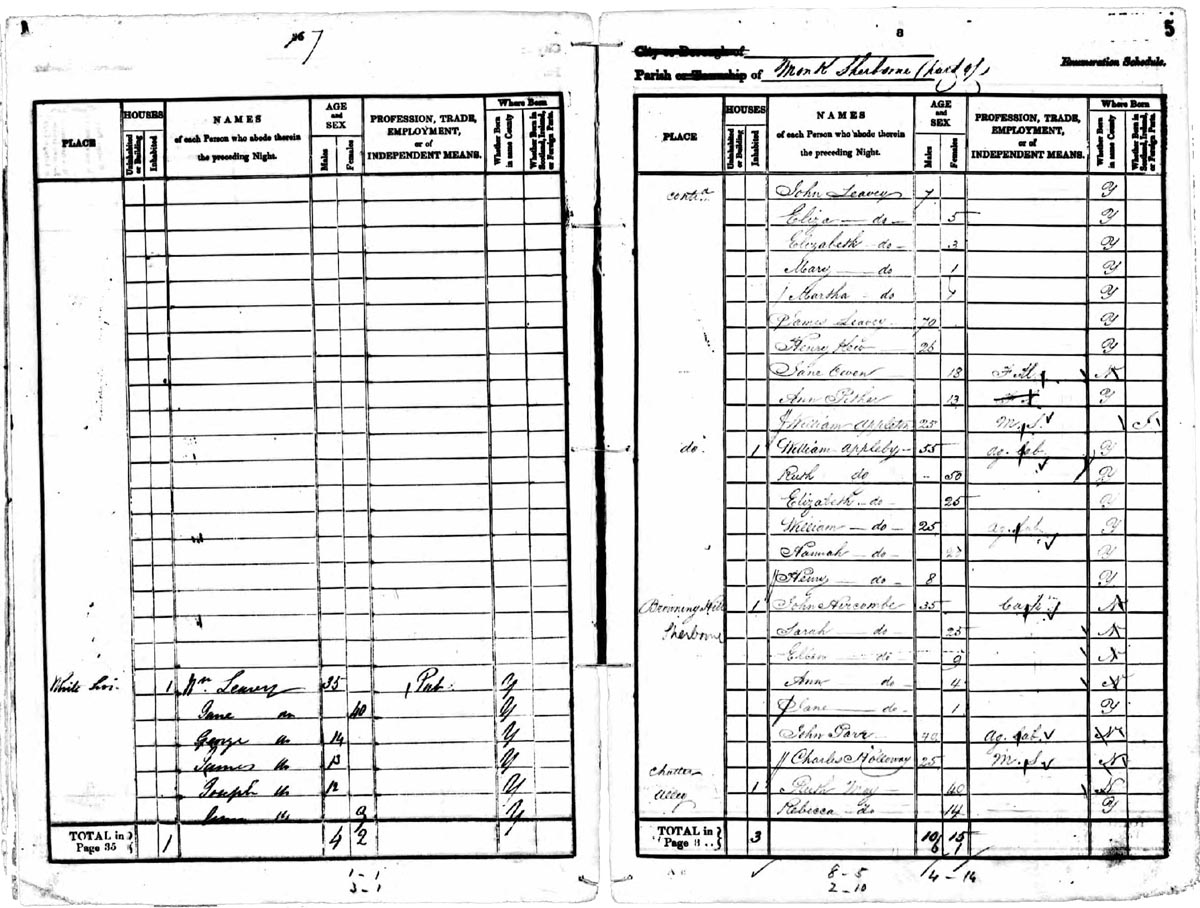 7
PLACE
HOUSES
Uninhabited or Building
Inhabited
NAMES
of each Person who abode therein
the preceding Night.
AGE and SEX
Males
Females
PROFESSION, TRADE,
EMPLOYMENT,
or of
INDEPENDENT MEANS.
Where Born
Whether Born in same County
Whether Born in Scotland, Ireland, or Foreign Parts.
1 Wm Leavey 35 Pub. Y
Jane do 40 Y
George do 14 Y
James do 13 Y
Joseph do 12 Y
do 9 Y
TOTAL in Page 35 1 4 2
1 - 1
3 - 1
8
5
City or Borough of
Parish or Township of Monk Sherborne (part of)
Enumeration Schedule.
PLACE
HOUSES
Uninhabited or Building
Inhabited
NAMES
of each Person who abode therein
the preceding Night.
AGE and SEX
Males
Females
PROFESSION, TRADE,
EMPLOYMENT,
or of
INDEPENDENT MEANS.
Where Born
Whether Born in same County
Whether Born in Scotland, Ireland, or Foreign Parts.
John Leavey 7 Y
Eliza do 5 Y
Elizabeth do 3 Y
Mary do 1 Y
Martha do Y
James Leavey 70 Y
Henry Y
Jane Owen 18 F.S. N
Ann Fisher 13 Y
William Appleton 25 M.S.
do. 1 William Appleby 55 Ag. Lab. Y
Ruth do 50 Y
Elizabeth do 25 Y
William do 25 Ag. Lab. Y
Hannah do Y
Henry do 8 Y
Browning Hill 1 John 35 N
Sherborne Sarah do 25 N
do 9 N
Ann do 4 N
Jane do 1 Y
John Parr 40 Ag. Lab. N
Charles Holloway 25 M.S. N
Chatter
Alley 1 Ruth May 40 N
Rebecca do 14 Y
TOTAL in Page 8 3 10 15
8 - 5
2 - 10
4 - 14